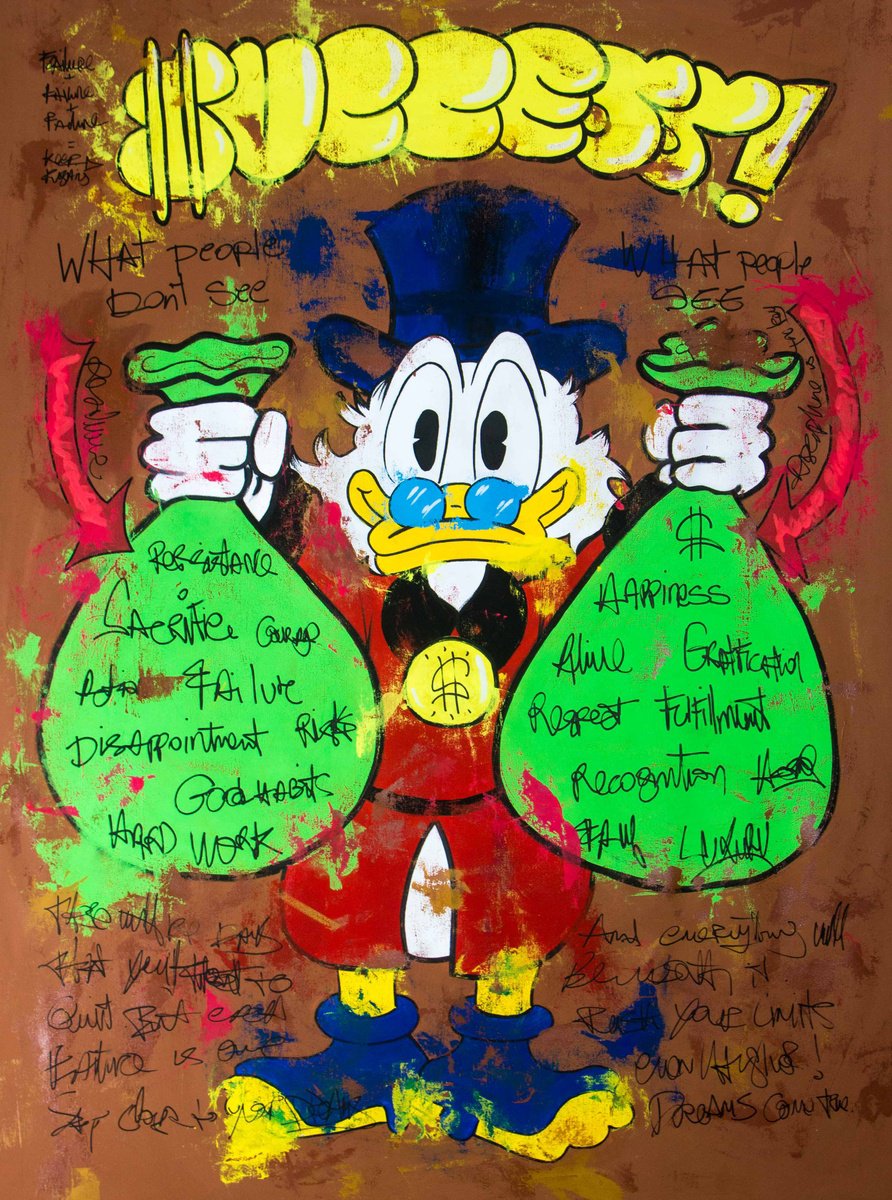 $UCCESS!
Failure
+
Failure
+
Failure
=
Keep
What people
Don't see
What people
SEE
Discipline is
Resistance
Sacrifice Courage
Failure
Disappointment Risks
Good Habits
Hard Work
$
Happiness
Alive Gratification
Respect Fulfillment
Recognition
Luxury
There will be days
that you'll to
Quit But each
Failure is one
Step closer to your Dream
And everything will
Be worth it
Push your limits
even Higher!
Dreams come true.